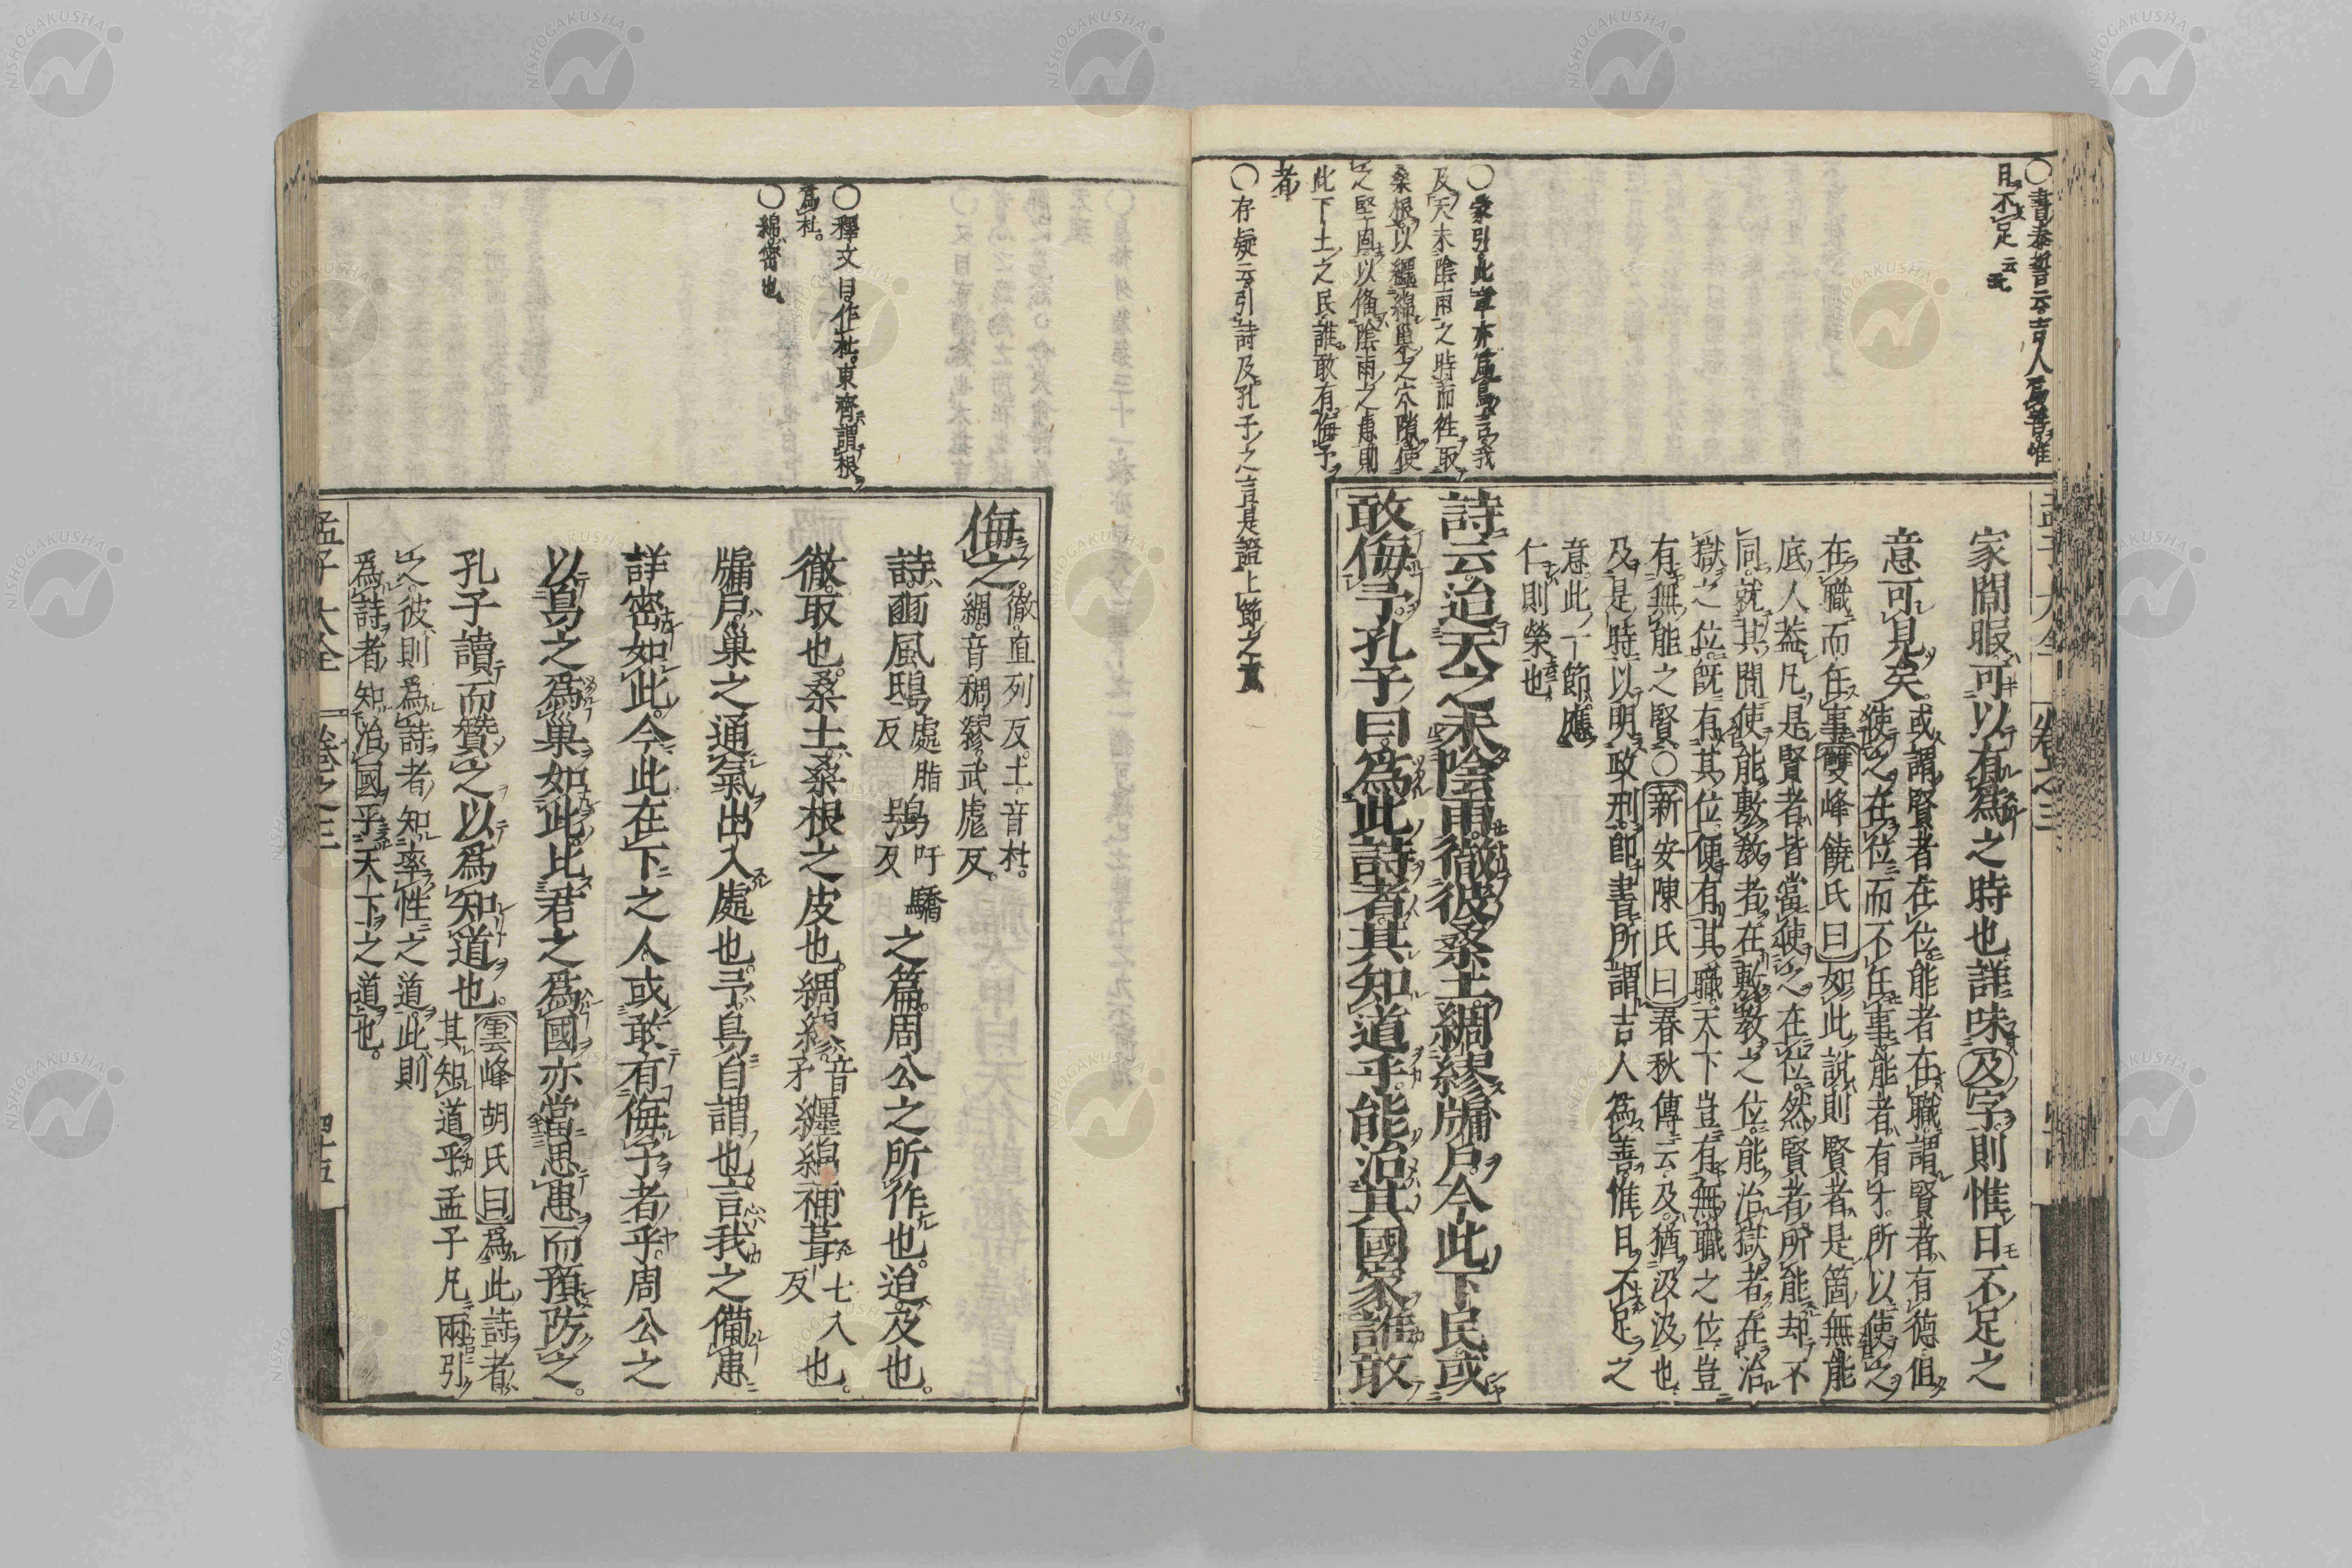 ○書泰誓云吉人為善惟
日不足云云
家閒暇可以有為之時也詳味及字則惟日不足之
意可見矣
或謂賢者在位能者在職謂賢者有德但
使之在位而不任事能者有才所以使之
在職而任事雙峰饒氏曰如此說則賢者是箇無能
底人葢凡是賢者皆當使之在位然賢者所能却不
同就其間使能敷敎者在敷敎之位能治獄者在治
獄之位旣有其位便有其職天下豈有無職之位豈
有無能之賢○新安陳氏曰春秋傳云及猶汲汲也
及是時以明政刑卽書所謂吉人為善惟日不足之
意此下節應
仁則榮也
○蒙引此章亦為鳥言我
及天未陰雨之時而徃取
桑根以纏綿巢之穴隙使
之堅固以俻陰雨之患則
此下土之民誰敢有侮予
者
○存疑云引詩及孔子之言是證上節之意
詩云迨天之未陰雨徹彼桑土綢繆牖戸今此下民或
敢侮予孔子曰為此詩者其知道乎能治其國家誰敢
侮之
徹直列反土音杜
綢音稠繆武彪反
○釋文目作杜東齊謂根
為杜
○綿密也
詩豳風鴟處脂反鴞吁驕反之篇周公之所作也迨及也
徹取也桑土桑根之皮也綢繆音矛纏綿補葺七入反也
牖戸巢之通氣出入處也予鳥自謂也言我之備患
詳密如此今此在下之人或敢有侮予者乎周公之
以鳥之為巢如此比君之為國亦當思患而預防之
孔子讀而贊之以為知道也
雲峰胡氏曰為此詩者
其知道乎孟子凡兩引
之彼則為詩者知率性之道此則
為詩者知治國平天下之道也
孟子大全
卷之三
四十五